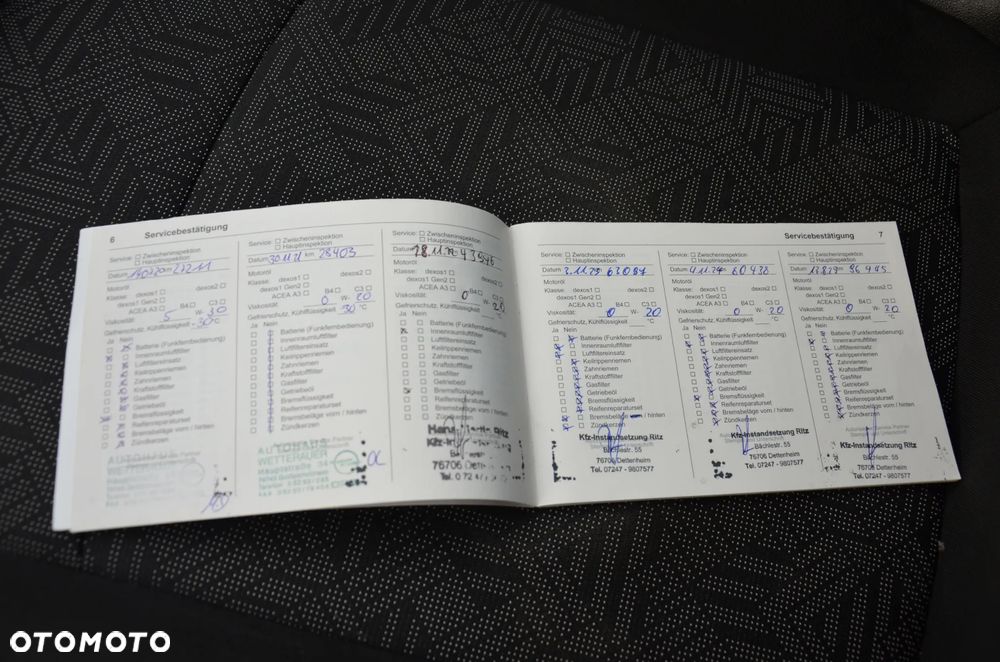 6 Servicebestätigung
Service: Zwischeninspektion
Hauptinspektion
Datum
Motoröl
Klasse: dexos1 dexos2
dexos1 Gen2
ACEA A3 B4 C3
Viskosität: 5 W- 30
Gefrierschutz, Kühlflüssigkeit -30 °C
Ja Nein
Batterie (Funkfernbedienung)
Innenraumluftfilter
Luftfiltereinsatz
Keilrippenriemen
Zahnriemen
Kraftstofffilter
Gasfilter
Getriebeöl
Bremsflüssigkeit
Reifenreparaturset
Bremsbeläge vorn / hinten
Zündkerzen
Service: Zwischeninspektion
Hauptinspektion
Datum 30.11.21 km 28403
Motoröl
Klasse: dexos1 dexos2
dexos1 Gen2
ACEA A3 B4 C3
Viskosität: 0 W- 20
Gefrierschutz, Kühlflüssigkeit 30 °C
Ja Nein
Batterie (Funkfernbedienung)
Innenraumluftfilter
Luftfiltereinsatz
Keilrippenriemen
Zahnriemen
Kraftstofffilter
Gasfilter
Getriebeöl
Bremsflüssigkeit
Reifenreparaturset
Bremsbeläge vorn / hinten
Zündkerzen
AUTOHAUS
WETTERAUER
Service: Zwischeninspektion
Hauptinspektion
Datum
Motoröl
Klasse: dexos1 dexos2
dexos1 Gen2
ACEA A3 B4 C3
Viskosität: 0 W- 20
Gefrierschutz, Kühlflüssigkeit °C
Ja Nein
Batterie (Funkfernbedienung)
Innenraumluftfilter
Luftfiltereinsatz
Keilrippenriemen
Zahnriemen
Kraftstofffilter
Gasfilter
Getriebeöl
Bremsflüssigkeit
Reifenreparaturset
Bremsbeläge vorn / hinten
Zündkerzen
76706
Servicebestätigung 7
Service: Zwischeninspektion
Hauptinspektion
Datum
Motoröl
Klasse: dexos1 dexos2
dexos1 Gen2
ACEA A3 B4 C3
Viskosität: 0 W- 20
Gefrierschutz, Kühlflüssigkeit °C
Ja Nein
Batterie (Funkfernbedienung)
Innenraumluftfilter
Luftfiltereinsatz
Keilrippenriemen
Zahnriemen
Kraftstofffilter
Gasfilter
Getriebeöl
Bremsflüssigkeit
Reifenreparaturset
Bremsbeläge vorn / hinten
Zündkerzen
Kfz-Instandsetzung Ritz
Bächlestr. 55
76706 Dettenheim
Tel. 07247 - 9807577
Service: Zwischeninspektion
Hauptinspektion
Datum 60438
Motoröl
Klasse: dexos1 dexos2
dexos1 Gen2
ACEA A3 B4 C3
Viskosität: 0 W- 20
Gefrierschutz, Kühlflüssigkeit °C
Ja Nein
Batterie (Funkfernbedienung)
Innenraumluftfilter
Luftfiltereinsatz
Keilrippenriemen
Zahnriemen
Kraftstofffilter
Gasfilter
Getriebeöl
Bremsflüssigkeit
Reifenreparaturset
Bremsbeläge vorn / hinten
Zündkerzen
Kfz-Instandsetzung Ritz
Bächlestr. 55
76706 Dettenheim
Tel. 07247 - 9807577
Service: Zwischeninspektion
Hauptinspektion
Datum
Motoröl
Klasse: dexos1 dexos2
dexos1 Gen2
ACEA A3 B4 C3
Viskosität: 0 W- 20
Gefrierschutz, Kühlflüssigkeit °C
Ja Nein
Batterie (Funkfernbedienung)
Innenraumluftfilter
Luftfiltereinsatz
Keilrippenriemen
Zahnriemen
Kraftstofffilter
Gasfilter
Getriebeöl
Bremsflüssigkeit
Reifenreparaturset
Bremsbeläge vorn / hinten
Zündkerzen
Kfz-Instandsetzung Ritz
Bächlestr. 55
76706 Dettenheim
Tel. 07247 - 9807577
OTOMOTO